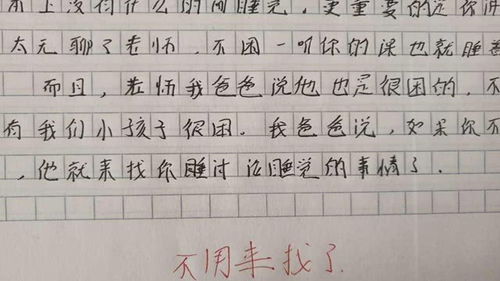 上没有什么时间睡觉，更重要的是你讲
太无聊了老师，不困一听你的课也就睡着
而且，老师我爸爸说他也是很困的，不
有我们小孩子很困。我爸爸说，如果你不
，他就来找你睡讨论睡觉的事情了.
不用来找了.